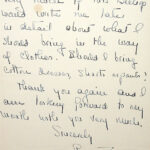 very much if the Bishop
would write me later
in detail about what I
should bring in the way
of clothes. Should I bring
cotton dresses, shorts, pants?
Thank you again and I
am looking forward to my
work with you very much.
Sincerely